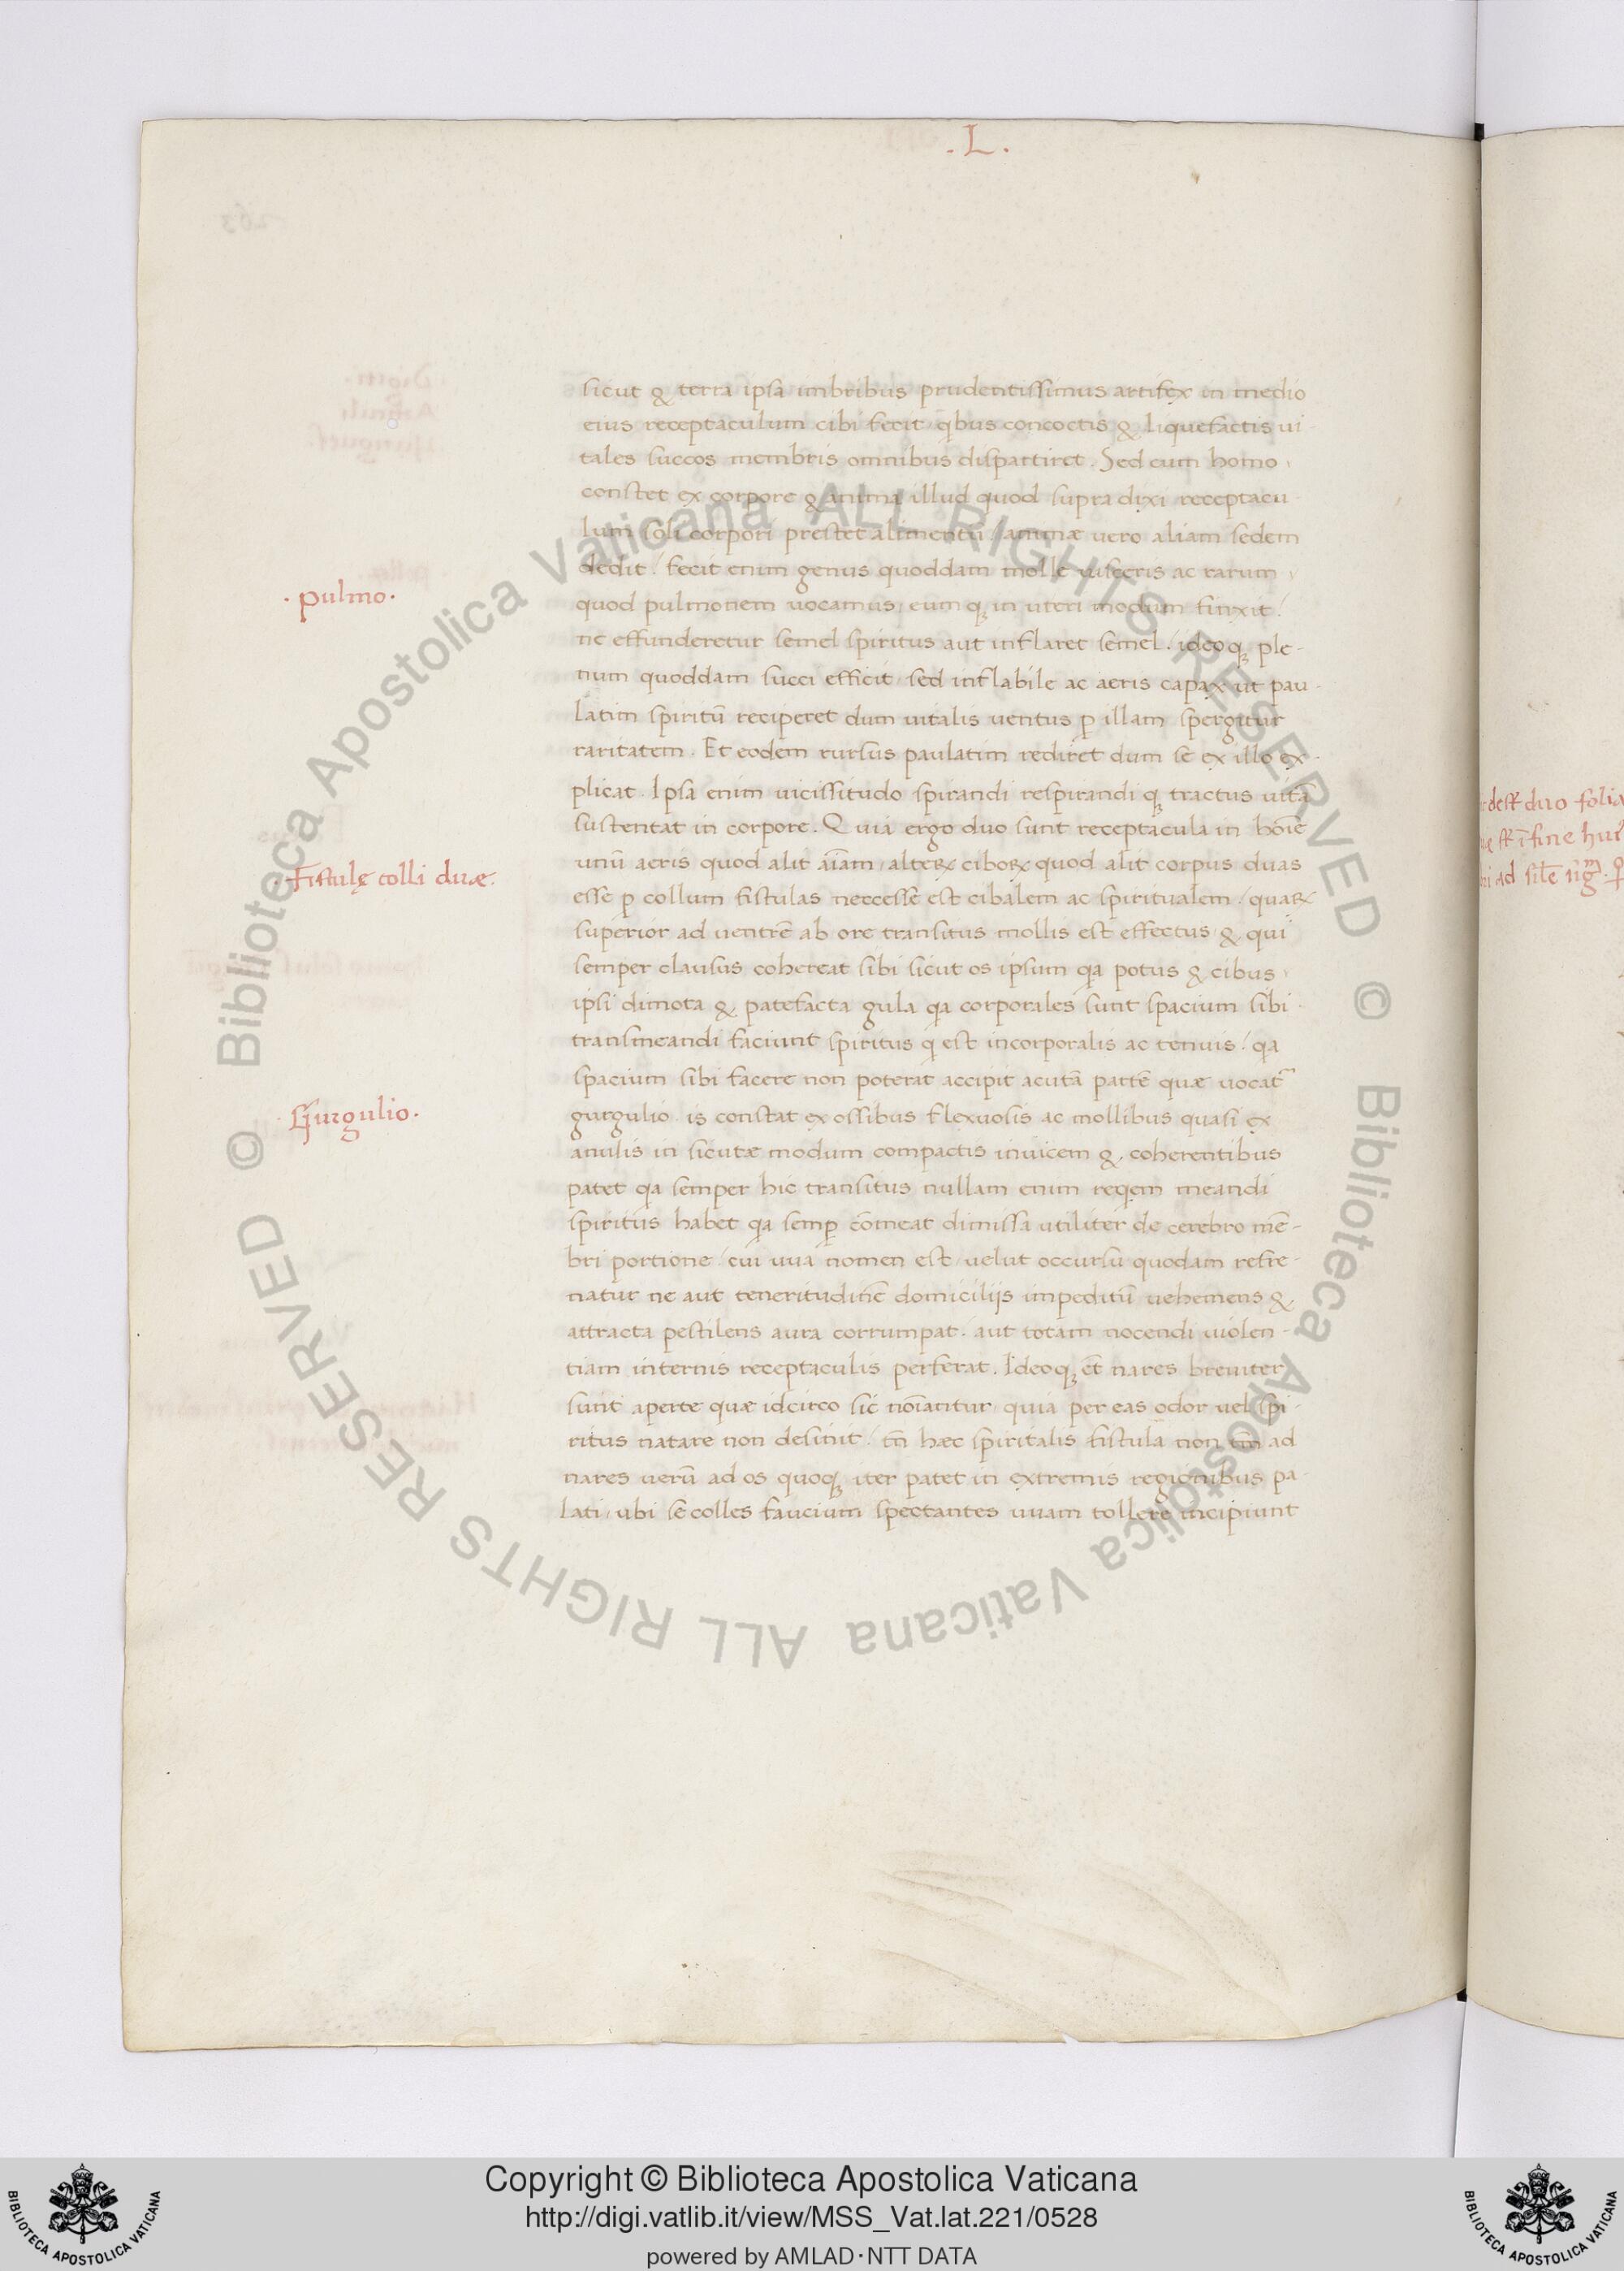 .L.
sicut & terra ipsa imbribus prudentissimus artifex in medio
eius receptaculum cibi fecit qbus concoctis & liquefactis ui-
tales succos membris omnibus dispartiret. Sed cum homo
constet ex corpore & anima illud quod supra dixi receptacu-
lum soli corpori prestet alimentū/ animæ uero aliam sedem
dedit/ fecit enim genus quoddam molle uisceris ac rarum
.pulmo.
quod pulmonem uocamus/ eum qꝫ in uteri modum finxit/
ne effunderetur semel spiritus aut inflaret semel/ ideoqꝫ ple-
num quoddam succi efficit sed inflabile ac aeris capax ut pau-
latim spiritū reciperet dum uitalis uentus ꝑ illam spergitur
raritatem. Et eodem rursus paulatim rediret dum se ex illo ex-
plicat. Ipsa enim uicissitudo spirandi respirandi qꝫ tractus uitā
sustentat in corpore. Quia ergo duo sunt receptacula in hoīe
unū aeris quod alit aīam/ alteꝝ ciboꝝ quod alit corpus duas
.Fistulę colli duæ.
esse ꝑ collum fistulas neccesse est cibalem ac spiritualem/ quaꝝ
superior ad uentrē ab ore transitus mollis est effectus & qui
semper clausus cohereat sibi sicut os ipsum qa potus & cibus
ipsi dimota & patefacta gula qa corporales sunt spacium sibi
transmeandi faciunt spiritus q est incorporalis ac tenuis/ qa
spacium sibi facere non poterat accipit acutā partē quæ uocat
.Gurgulio.
gurgulio is constat ex ossibus flexuosis ac mollibus quasi ex
anulis in sicutæ modum compactis inuicem & coherentibus
patet qa semper hic transitus nullam enim reqem meandi
spiritus habet qa semꝑ cōmeat dimissa utiliter de cerebro mē-
bri portione/ cui uua nomen est uelut occursu quodam refre-
natur ne aut teneritudinē domicilijs impeditū uehemens &
attracta pestilens aura corrumpat/ aut totam nocendi uiolen-
tiam internis receptaculis perferat. Ideoqꝫ et nares breuiter
sunt aperte quæ idcirco sic noīantur quia per eas odor uel spi-
ritus natare non desinit/ tn̄ hæc spiritalis fistula non tm̄ ad
nares uerū ad os quoqꝫ iter patet in extremis regionibus pa-
lati/ ubi se colles faucium spectantes uuam tollere incipiunt
duo folia
© Biblioteca Apostolica Vaticana ALL RIGHTS RESERVED © Biblioteca Apostolica Vaticana ALL RIGHTS RESERVED
Copyright © Biblioteca Apostolica Vaticana
http://digi.vatlib.it/view/MSS_Vat.lat.221/0528
powered by AMLAD·NTT DATA
BIBLIOTECA APOSTOLICA VATICANA
BIBLIOTECA APOSTOLICA VATICANA